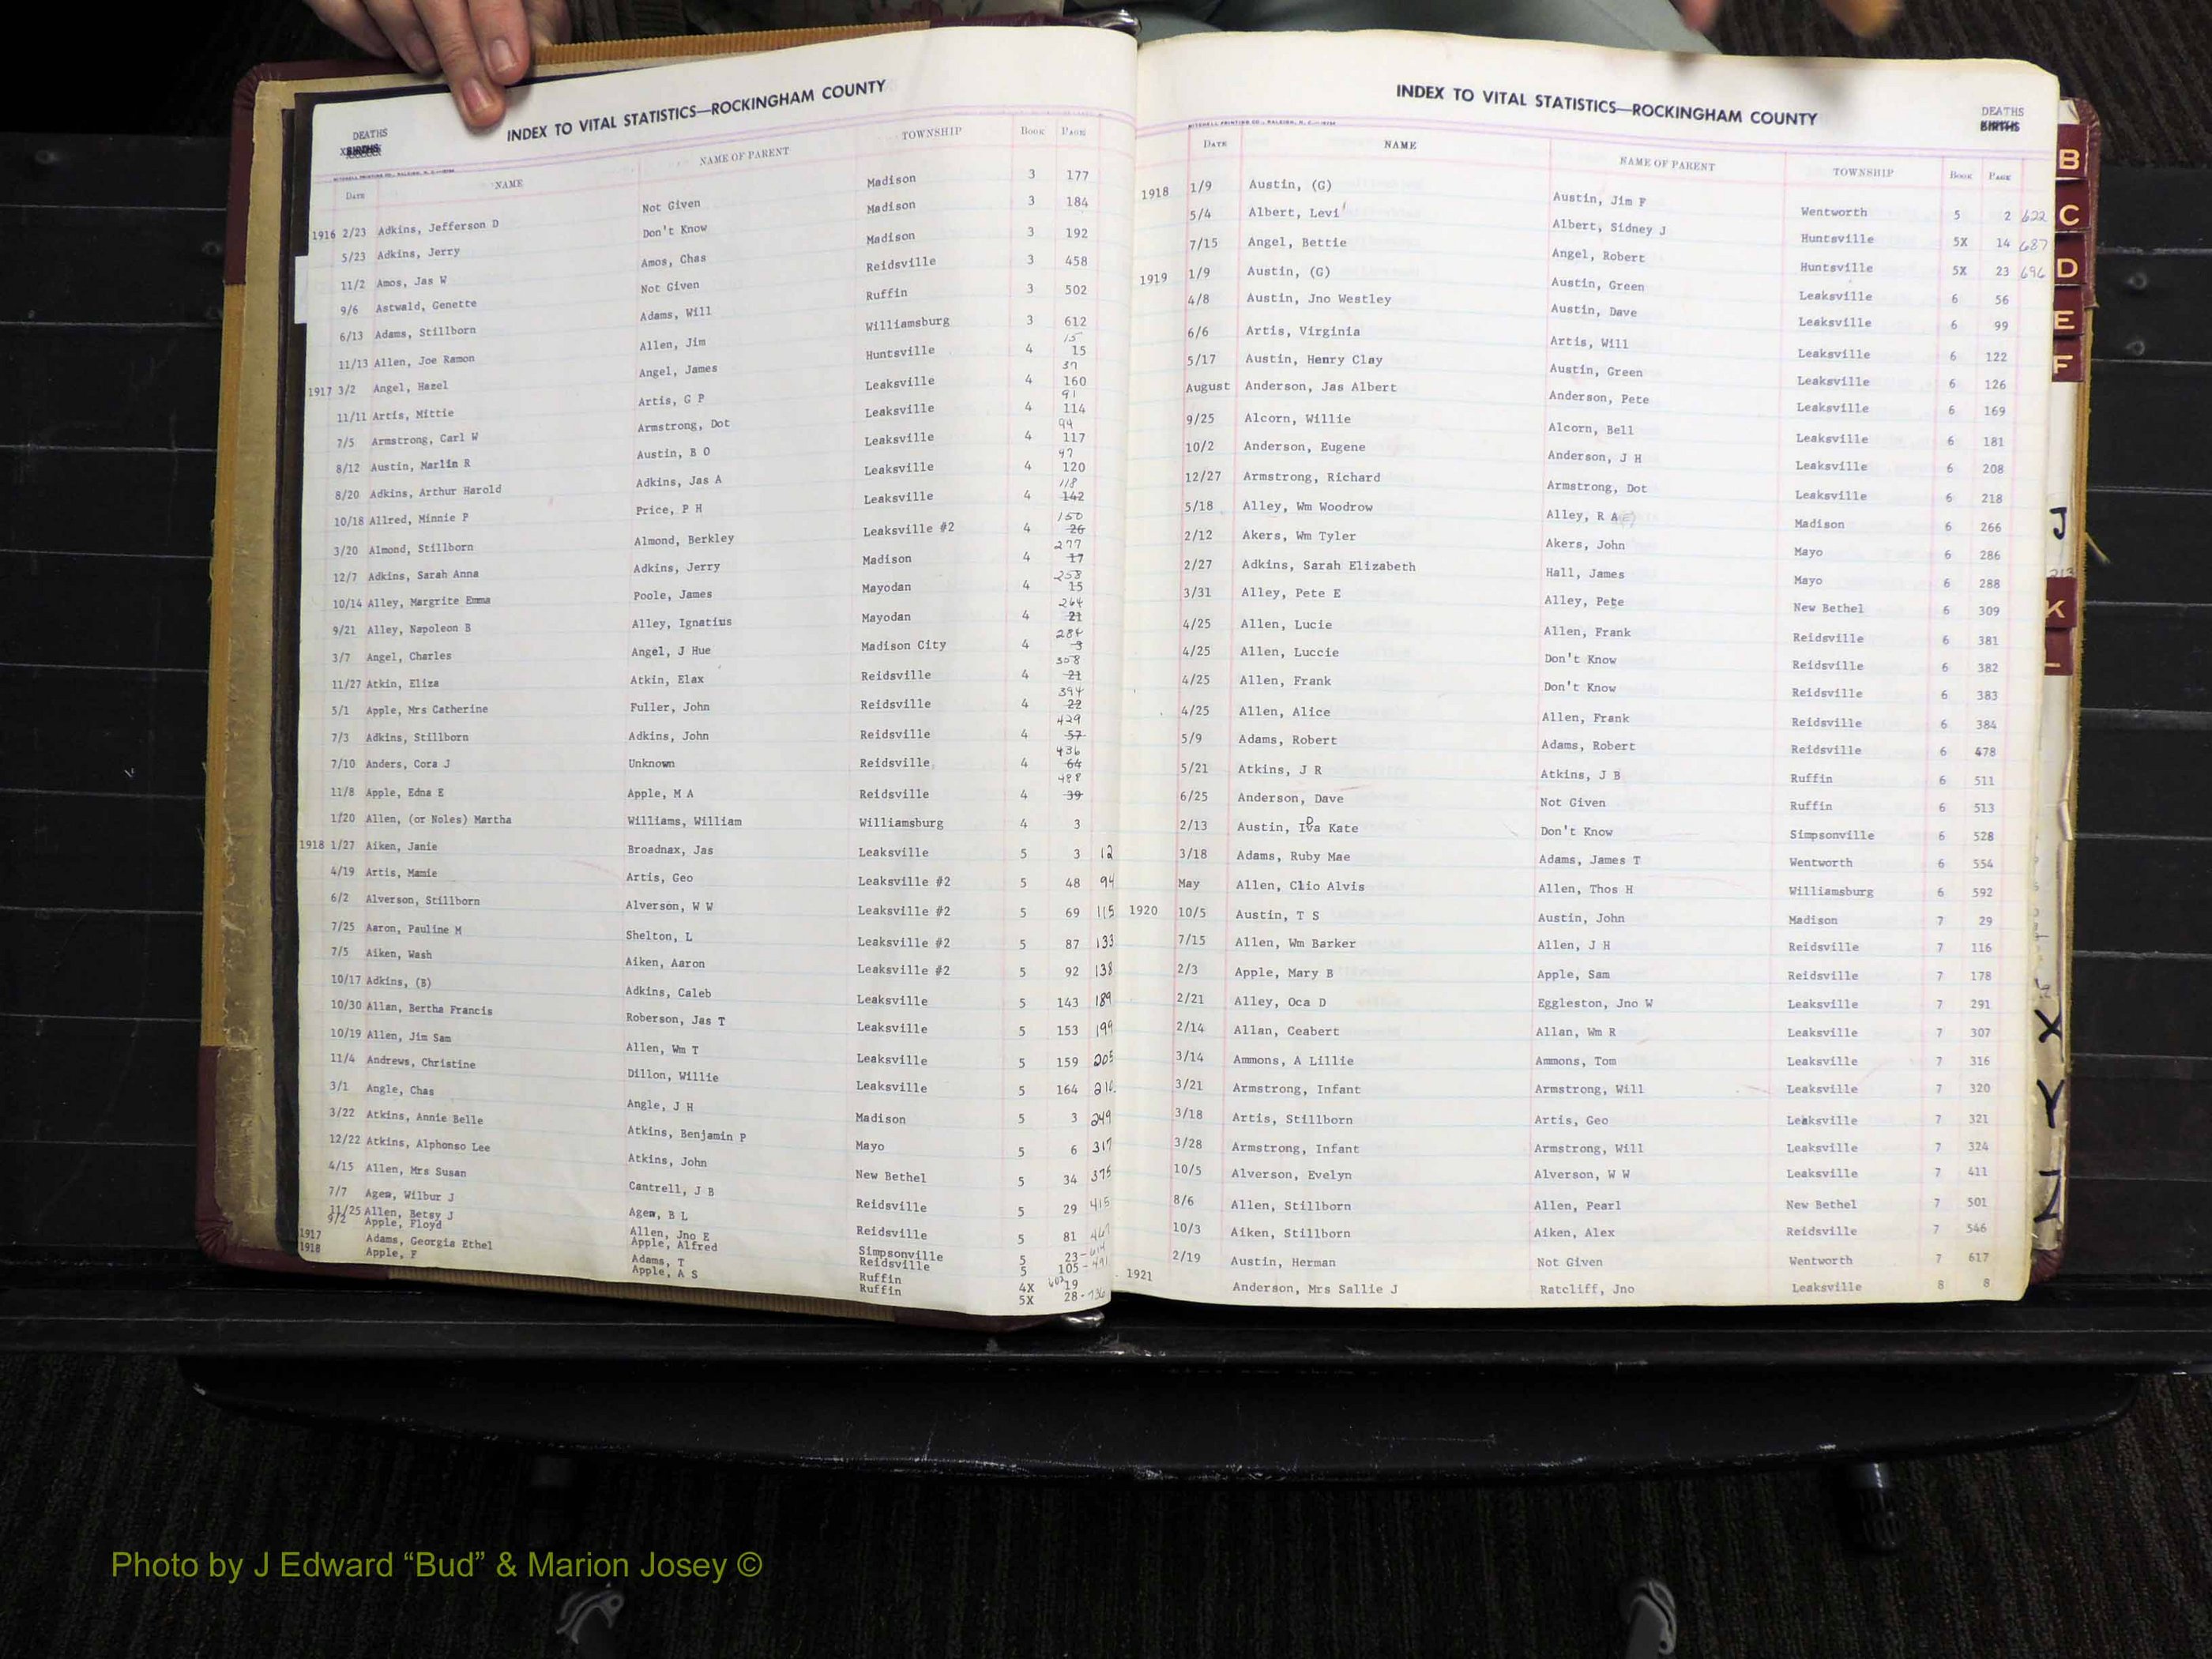 INDEX TO VITAL STATISTICS—ROCKINGHAM COUNTY
DEATHS
BIRTHS
Date NAME NAME OF PARENT TOWNSHIP Book Page
1916 2/23 Adkins, Jefferson D Not Given Madison 3 177
5/23 Adkins, Jerry Don't Know Madison 3 184
11/2 Amos, Jas W Amos, Chas Madison 3 192
9/6 Astwald, Genette Not Given Reidsville 3 458
6/13 Adams, Stillborn Adams, Will Ruffin 3 502
11/13 Allen, Joe Ramon Allen, Jim Williamsburg 3 612
1917 3/2 Angel, Hazel Angel, James Huntsville 4 15 15
11/11 Artis, Mittie Artis, G P Leaksville 4 37 160
7/5 Armstrong, Carl W Armstrong, Dot Leaksville 4 91 114
8/12 Austin, Marlin R Austin, B O Leaksville 4 94 117
8/20 Adkins, Arthur Harold Adkins, Jas A Leaksville 4 97 120
10/18 Allred, Minnie P Price, P H Leaksville 4 118 142
3/20 Almond, Stillborn Almond, Berkley Leaksville #2 4 150 26
12/7 Adkins, Sarah Anna Adkins, Jerry Madison 4 277 17
10/14 Alley, Margrite Emma Poole, James Mayodan 4 258 15
9/21 Alley, Napoleon B Alley, Ignatius Mayodan 4 264 21
3/7 Angel, Charles Angel, J Hue Madison City 4 284 3
11/27 Atkin, Eliza Atkin, Elax Reidsville 4 358 21
5/1 Apple, Mrs Catherine Fuller, John Reidsville 4 394 22
7/3 Adkins, Stillborn Adkins, John Reidsville 4 429 57
7/10 Anders, Cora J Unknown Reidsville 4 436 64
11/8 Apple, Edna E Apple, M A Reidsville 4 488 39
1/20 Allen, (or Noles) Martha Williams, William Williamsburg 4 3
1918 1/27 Aiken, Janie Broadnax, Jas Leaksville 5 3 12
4/19 Artis, Mamie Artis, Geo Leaksville #2 5 48 94
6/2 Alverson, Stillborn Alverson, W W Leaksville #2 5 69 115
7/25 Aaron, Pauline M Shelton, L Leaksville #2 5 87 133
7/5 Aiken, Wash Aiken, Aaron Leaksville #2 5 92 138
10/17 Adkins, (B) Adkins, Caleb Leaksville 5 143 189
10/30 Allan, Bertha Francis Roberson, Jas T Leaksville 5 153 199
10/19 Allen, Jim Sam Allen, Wm T Leaksville 5 159 205
11/4 Andrews, Christine Dillon, Willie Leaksville 5 164 210
3/1 Angle, Chas Angle, J H Madison 5 3 249
3/22 Atkins, Annie Belle Atkins, Benjamin P Mayo 5 6 317
12/22 Atkins, Alphonso Lee Atkins, John New Bethel 5 34 375
4/15 Allen, Mrs Susan Cantrell, J B Reidsville 5 29 415
7/7 Agew, Wilbur J Agew, B L Reidsville 5 81 467
11/25 Allen, Betsy J Allen, Jno E Simpsonville 5 23-
9/2 Apple, Floyd Apple, Alfred Reidsville 5 105-491
1917 Adams, Georgia Ethel Adams, T Ruffin 4X 19
1918 Apple, F Apple, A S Ruffin 5X 28-
INDEX TO VITAL STATISTICS—ROCKINGHAM COUNTY
DEATHS
BIRTHS
MITCHELL PRINTING CO., RALEIGH, N. C.
Date NAME NAME OF PARENT TOWNSHIP Book Page
1918 1/9 Austin, (G) Austin, Jim F Wentworth 5 2 622
5/4 Albert, Levi Albert, Sidney J Huntsville 5X 14 687
7/15 Angel, Bettie Angel, Robert Huntsville 5X 23 696
1919 1/9 Austin, (G) Austin, Green Leaksville 6 56
4/8 Austin, Jno Westley Austin, Dave Leaksville 6 99
6/6 Artis, Virginia Artis, Will Leaksville 6 122
5/17 Austin, Henry Clay Austin, Green Leaksville 6 126
August Anderson, Jas Albert Anderson, Pete Leaksville 6 169
9/25 Alcorn, Willie Alcorn, Bell Leaksville 6 181
10/2 Anderson, Eugene Anderson, J H Leaksville 6 208
12/27 Armstrong, Richard Armstrong, Dot Leaksville 6 218
5/18 Alley, Wm Woodrow Alley, R A Madison 6 266
2/12 Akers, Wm Tyler Akers, John Mayo 6 286
2/27 Adkins, Sarah Elizabeth Hall, James Mayo 6 288
3/31 Alley, Pete E Alley, Pete New Bethel 6 309
4/25 Allen, Lucie Allen, Frank Reidsville 6 381
4/25 Allen, Luccie Don't Know Reidsville 6 382
4/25 Allen, Frank Don't Know Reidsville 6 383
4/25 Allen, Alice Allen, Frank Reidsville 6 384
5/9 Adams, Robert Adams, Robert Reidsville 6 478
5/21 Atkins, J R Atkins, J B Ruffin 6 511
6/25 Anderson, Dave Not Given Ruffin 6 513
2/13 Austin, Iva Kate Don't Know Simpsonville 6 528
3/18 Adams, Ruby Mae Adams, James T Wentworth 6 554
May Allen, Clio Alvis Allen, Thos H Williamsburg 6 592
1920 10/5 Austin, T S Austin, John Madison 7 29
7/15 Allen, Wm Barker Allen, J H Reidsville 7 116
2/3 Apple, Mary B Apple, Sam Reidsville 7 178
2/21 Alley, Oca D Eggleston, Jno W Leaksville 7 291
2/14 Allan, Ceabert Allan, Wm R Leaksville 7 307
3/14 Ammons, A Lillie Ammons, Tom Leaksville 7 316
3/21 Armstrong, Infant Armstrong, Will Leaksville 7 320
3/18 Artis, Stillborn Artis, Geo Leaksville 7 321
3/28 Armstrong, Infant Armstrong, Will Leaksville 7 324
10/5 Alverson, Evelyn Alverson, W W Leaksville 7 411
8/6 Allen, Stillborn Allen, Pearl New Bethel 7 501
10/3 Aiken, Stillborn Aiken, Alex Reidsville 7 546
2/19 Austin, Herman Not Given Wentworth 7 617
1921 Anderson, Mrs Sallie J Ratcliff, Jno Leaksville 8 8
B
C
D
E
F
J
K
L
X
Y
Photo by J Edward “Bud” & Marion Josey ©